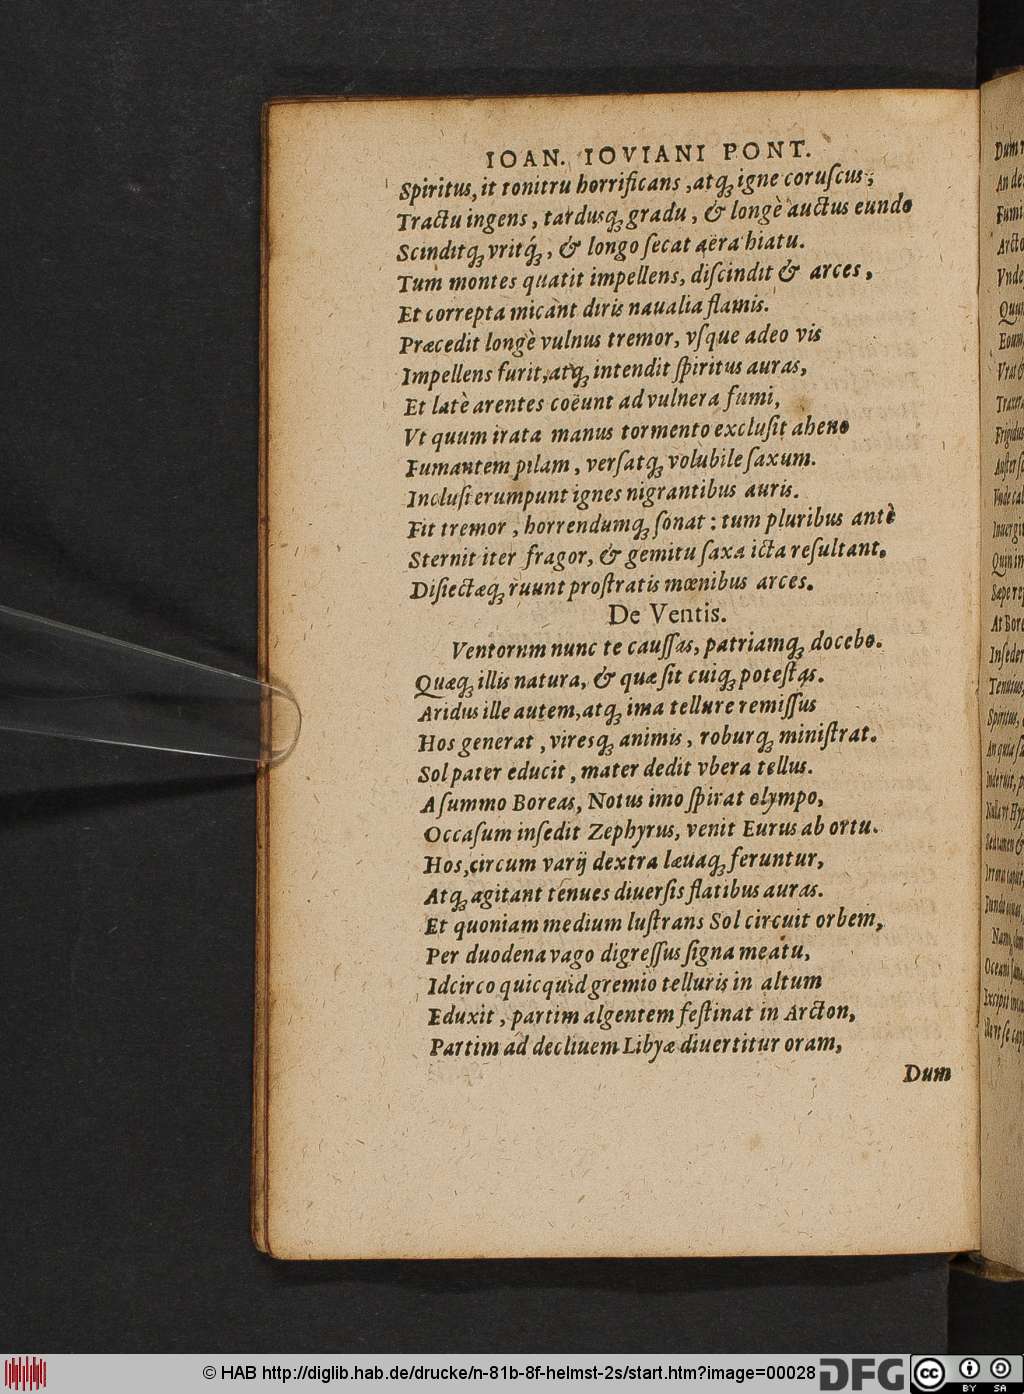 IOAN. IOVIANI PONT.
Spiritus, it tonitru horrificans, atqꝫ igne coruſcus;
Tractu ingens, tardusqꝫ gradu, & longè auctus eundo
Scinditqꝫ vritq́ꝫ, & longo ſecat aëra hiatu.
Tum montes quatit impellens, diſcindit & arces,
Et correpta micant diris naualia flamis.
Præcedit longè vulnus tremor, vſque adeo vis
Impellens furit, atqꝫ intendit ſpiritus auras,
Et latè arentes coëunt ad vulnera fumi,
Vt quum irata manus tormento excluſit aheno
Fumantem pilam, verſatqꝫ volubile ſaxum.
Incluſi erumpunt ignes nigrantibus auris.
Fit tremor, horrendumqꝫ ſonat: tum pluribus antè
Sternit iter fragor, & gemitu ſaxa icta reſultant.
Diſiectæqꝫ ruunt proſtratis mœnibus arces.
De Ventis.
Ventornm nunc te cauſſas, patriamqꝫ docebo.
Quæqꝫ illis natura, & quæ ſit cuiqꝫ poteſtas.
Aridus ille autem, atqꝫ ima tellure remiſſus
Hos generat, viresqꝫ animis, roburqꝫ miniſtrat.
Sol pater educit, mater dedit vbera tellus.
A ſummo Boreas, Notus imo ſpirat olympo,
Occaſum inſedit Zephyrus, venit Eurus ab ortu.
Hos, circum varij dextra læuaqꝫ feruntur,
Atqꝫ agitant tenues diuerſis flatibus auras.
Et quoniam medium luſtrans Sol circuit orbem,
Per duodena vago digreſſus ſigna meatu,
Idcirco quicquid gremio telluris in altum
Eduxit, partim algentem feſtinat in Arcton,
Partim ad decliuem Libyæ diuertitur oram,
Dum
© HAB http://diglib.hab.de/drucke/n-81b-8f-helmst-2s/start.htm?image=00028
DFG
cc BY SA